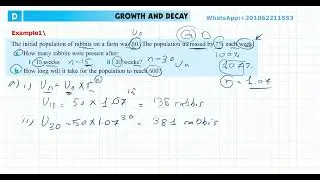 D GROWTH AND DECAY WhatsApp:+201062211553
Example1\ U₀ G D
The initial population of rabbits on a farm was 50. The population increased by 7% each week.
a How many rabbits were present after: 100%
i 15 weeks n=15 ii 30 weeks? n=30 Uₙ 107%
b How long will it take for the population to reach 500? r = 1.07
a) i) Uₙ = U₀ × rⁿ
U₁₅ = 50 × 1.07¹⁵ = 138 rabbis
ii) U₃₀ = 50 × 1.07³⁰ = 381 rabbis